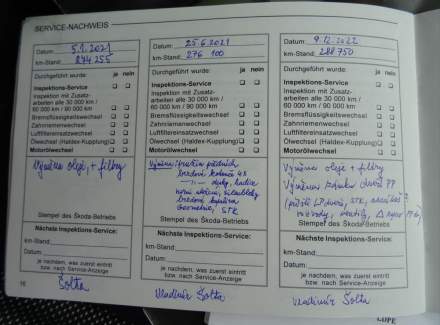 SERVICE-NACHWEIS
Datum: 5.1.2021
km-Stand: 274 255
Durchgeführt wurde: ja nein
Inspektions-Service
Inspektion mit Zusatz-
arbeiten alle 30 000 km /
60 000 km / 90 000 km
Bremsflüssigkeitswechsel
Zahnriemenwechsel
Luftfiltereinsatzwechsel
Ölwechsel (Haldex-Kupplung)
Motorölwechsel
Výměna oleje, + filtry
Stempel des Škoda-Betriebs
Nächste Inspektions-Service:
km-Stand:
Datum:
je nachdem, was zuerst eintritt
bzw. nach Service-Anzeige
16
Šolta
Datum: 25.6.2021
km-Stand: 276 100
Durchgeführt wurde: ja nein
Inspektions-Service
Inspektion mit Zusatz-
arbeiten alle 30 000 km /
60 000 km / 90 000 km
Bremsflüssigkeitswechsel
Zahnriemenwechsel
Luftfiltereinsatzwechsel
Ölwechsel (Haldex-Kupplung)
Motorölwechsel
Výměna: předních
brzdové
hadice
brzdová kapalina
Geometrie, STK
Stempel des Škoda-Betriebs
Nächste Inspektions-Service:
km-Stand:
Datum:
je nachdem, was zuerst eintritt
bzw. nach Service-Anzeige
Vladimír Šolta
Datum: 9.12.2022
km-Stand: 288 750
Durchgeführt wurde: ja nein
Inspektions-Service
Inspektion mit Zusatz-
arbeiten alle 30 000 km /
60 000 km / 90 000 km
Bremsflüssigkeitswechsel
Zahnriemenwechsel
Luftfiltereinsatzwechsel
Ölwechsel (Haldex-Kupplung)
Motorölwechsel
Výměna oleje + filtry
Výměna zámku dveří PP
(příště LP dveře, STK,
rozvody, ventily,
Stempel des Škoda-Betriebs
Nächste Inspektions-Service:
km-Stand:
Datum:
je nachdem, was zuerst eintritt
bzw. nach Service-Anzeige
Vladimír Šolta